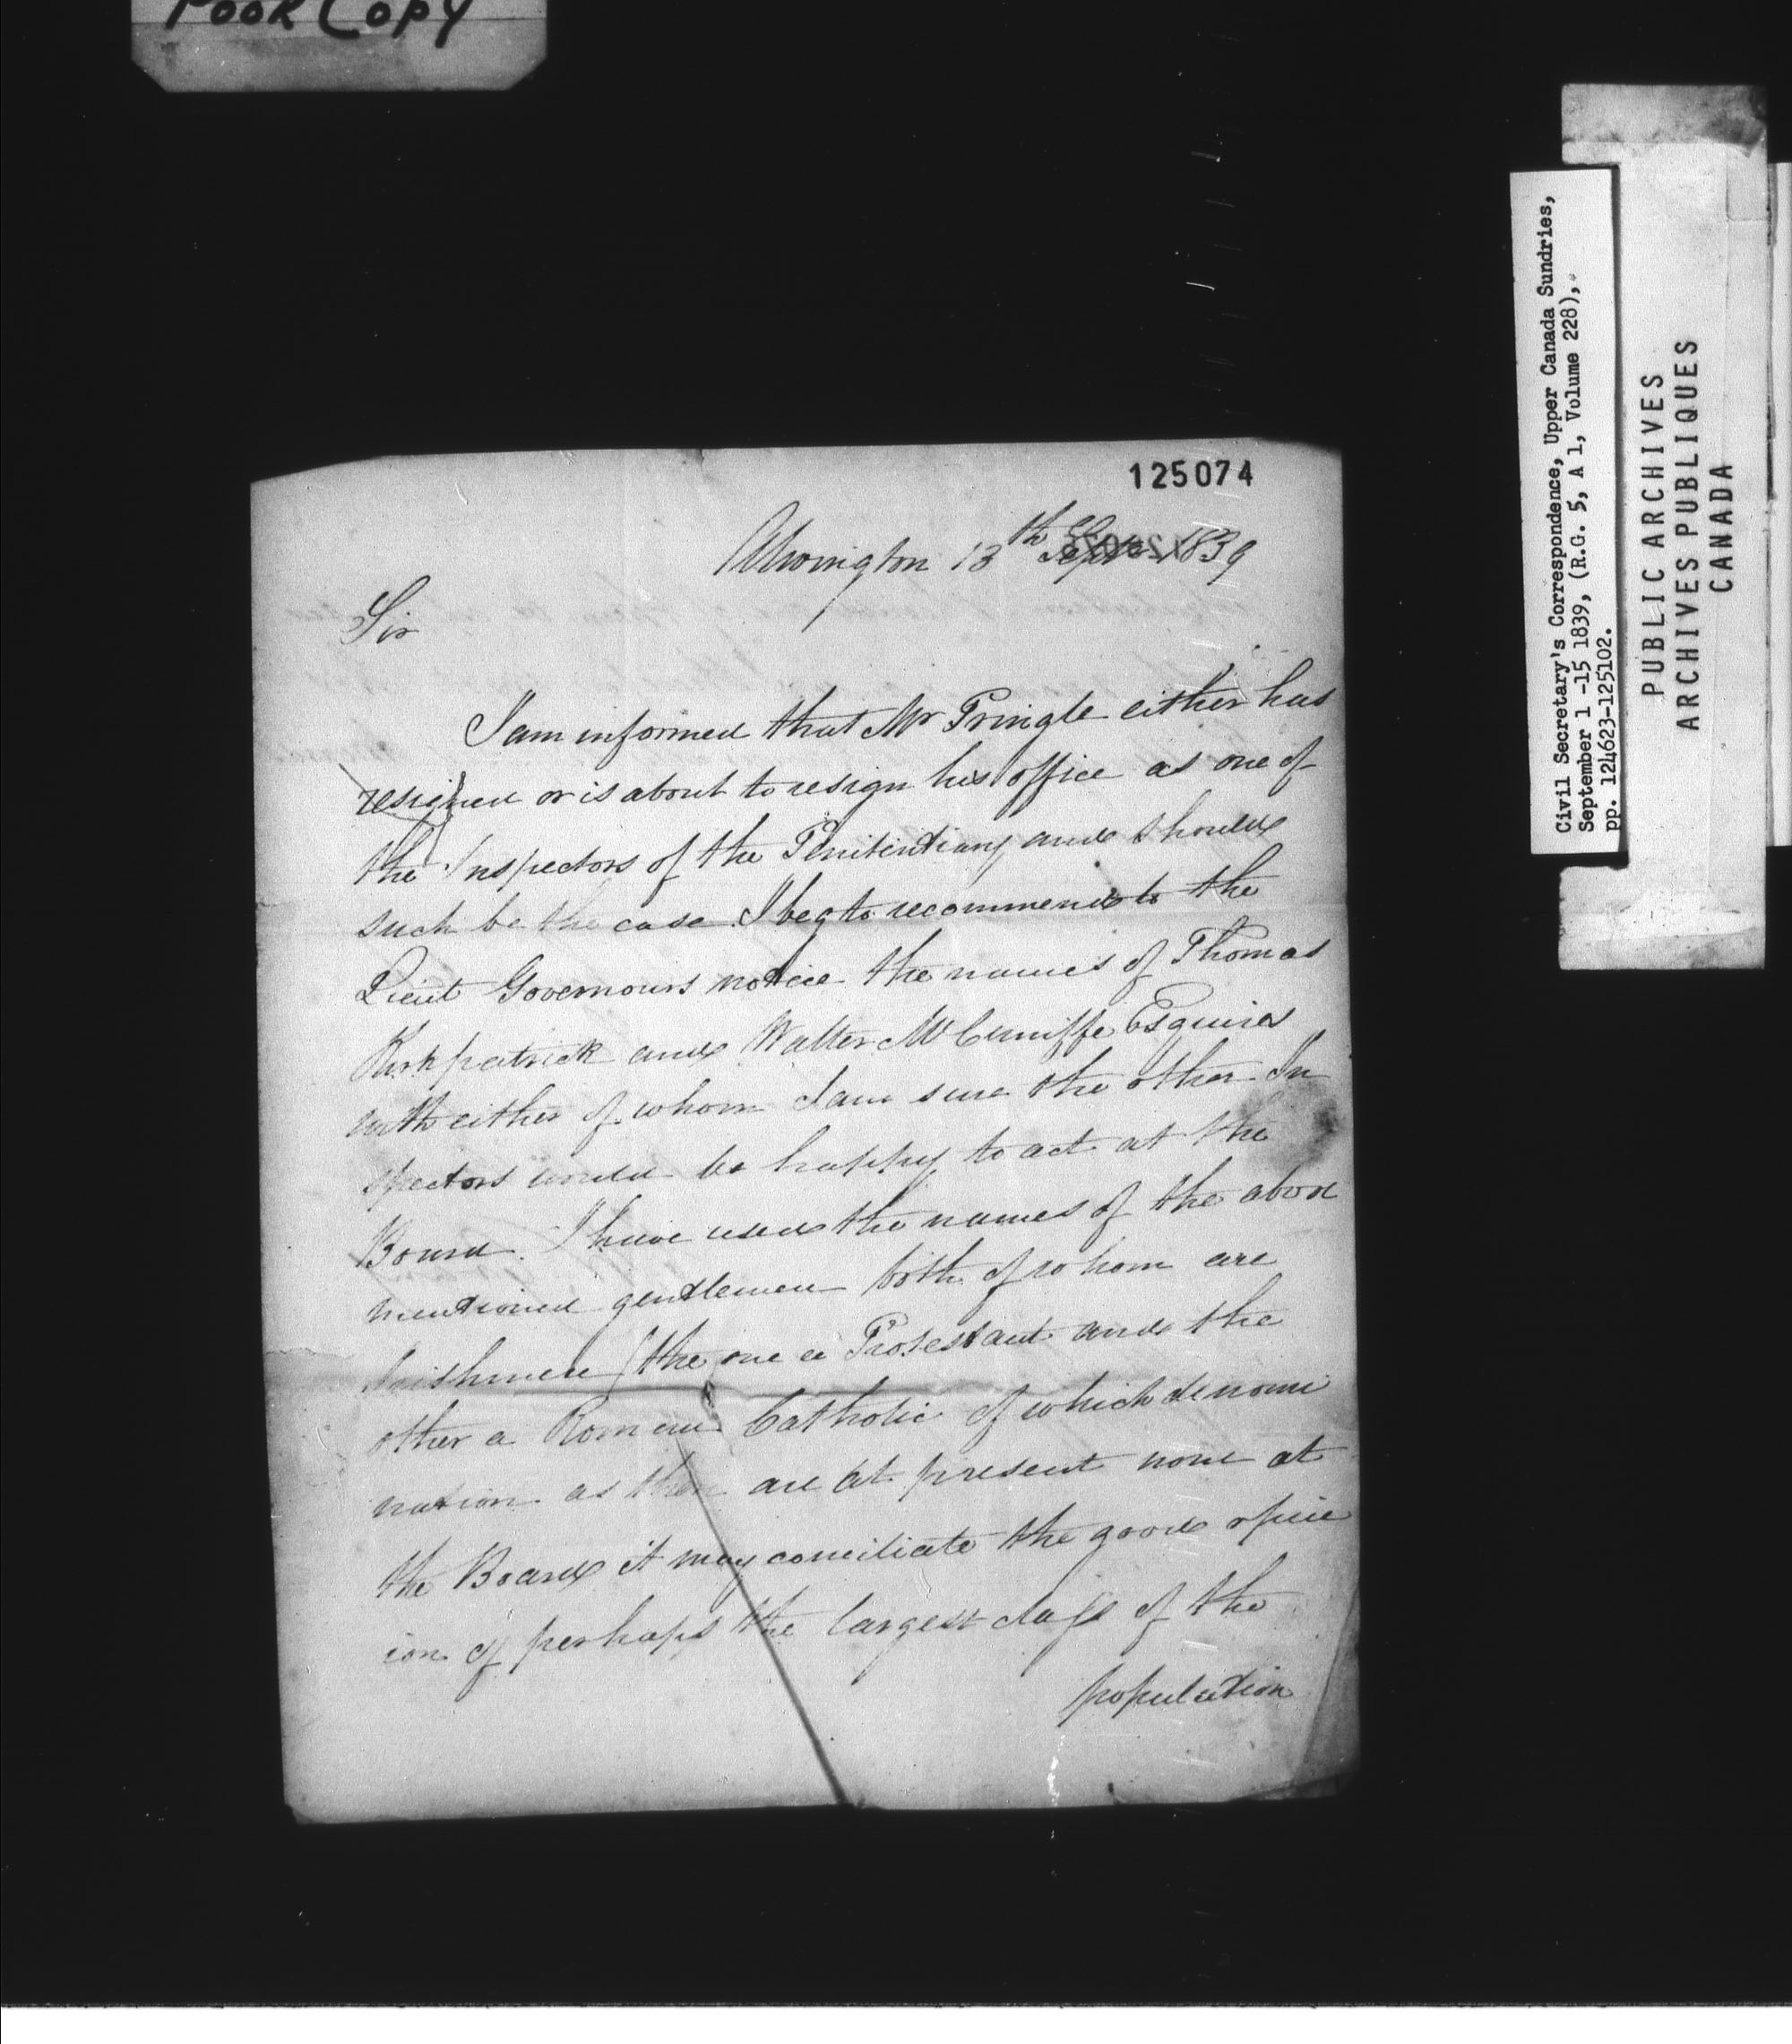 POOR COPY
125074
Alwington 13th Septr 1839
Sir
I am informed that Mr Pringle either has
resigned or is about to resign his office as one of
the Inspectors of the Penitentiary and should
such be the case I beg to recommend to the
Lieut Governours notice the names of Thomas
Kirkpatrick and Walter McCuniffe Esquires
with either of whom I am sure the other In
spectors would be happy to act at the
Board. I have used the names of the above
mentioned gentlemen both of whom are
Irishmen (the one a Protestant and the
other a Roman Catholic of which denomi
nation as there are at present none at
the Board it may conciliate the good opin
ion of perhaps the largest class of the
population
Civil Secretary's Correspondence, Upper Canada Sundries,
September 1 -15 1839, (R.G. 5, A 1, Volume 228),
pp. 124623-125102.
PUBLIC ARCHIVES
ARCHIVES PUBLIQUES
CANADA